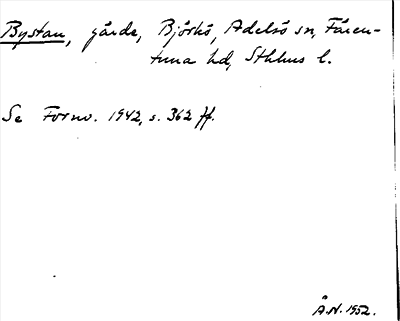 Bystan, gärde, Björkö, Adelsö sn, Fären-
tuna hd, Sthlms l.
Se Fornv. 1942, s. 362 ff.
Å.N. 1952.